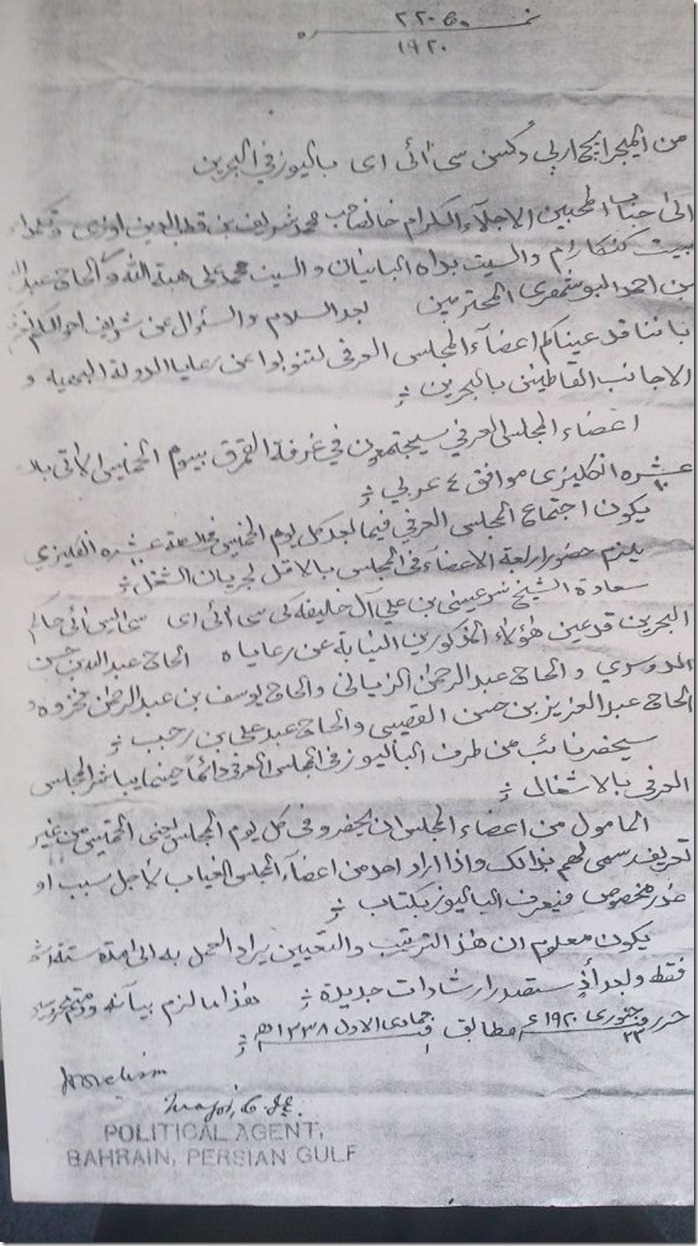 نمره ٢٢٠
١٩٢٠
من الميجر ايچ اربي دكسن سي ائي اي باليوز في البحرين
الى جناب المحبين الاجلاء الكرام خانصاحب محمد شريف بن قطب الدين اوزي
بيت كنكارام والسيت بداه البانيان والسيد محمد علي هبة الله والحاج
بن احمد البوشهري المحترمين بعد السلام والسئوال عن شريف احوالكم
باننا قد عيناكم اعضآء المجلس العرفي لتنوبوا عن رعايا الدولة البهية و
الاجانب القاطنين بالبحرين
اعضاء المجلس العرفي سيجتمعون في غرفة القمرق بيوم الخميس الاتي
عشره انكليزي موافق ٤ عربي
يكون اجتماع المجلس العرفي فيما بعد كل يوم الخميس عشره انقليزي
يلزم حضور اربعة الاعضآء في المجلس بالاقل لجريان الشغل
سعادة الشيخ سر عيسى بن علي آل خليفه كي سي ائي اي سي ايس ائي حاكم
البحرين قد عين هؤلاء المذكورين النيابة عن رعاياه الحاج عبدالله بن حسن
الدوسري والحاج عبدالرحمن الزياني والحاج يوسف بن عبدالرحمن فخروه
الحاج عبدالعزيز بن حسن القصيبي والحاج عبد علي بن رجب
سيحضر نائب من طرف الباليوز في المجلس العرفي دائماً حينما يباشر المجلس
العرفي بالاشغال
المامول من اعضاء المجلس ان يحضرو في كل يوم المجلس يعني الخميس من غير
تعريف رسمي لهم بذالك واذا اراد احد من اعضآء المجلس الغياب لاجل سبب او
عذر مخصوص فيعرف الباليوز بكتاب
يكون معلوم ان هذ الترتيب والتعيين يراد العمل به الى مدة ستة
فقط وبعدأذٍ ستصدر ارشادات جديدة هذا ما لزم بيآنه ودمتم
حرر في ٢٣ جنوري ١٩٢٠ء مطابق جمادى الاول ١٣٣٨هـ
Major,
POLITICAL AGENT,
BAHRAIN, PERSIAN GULF